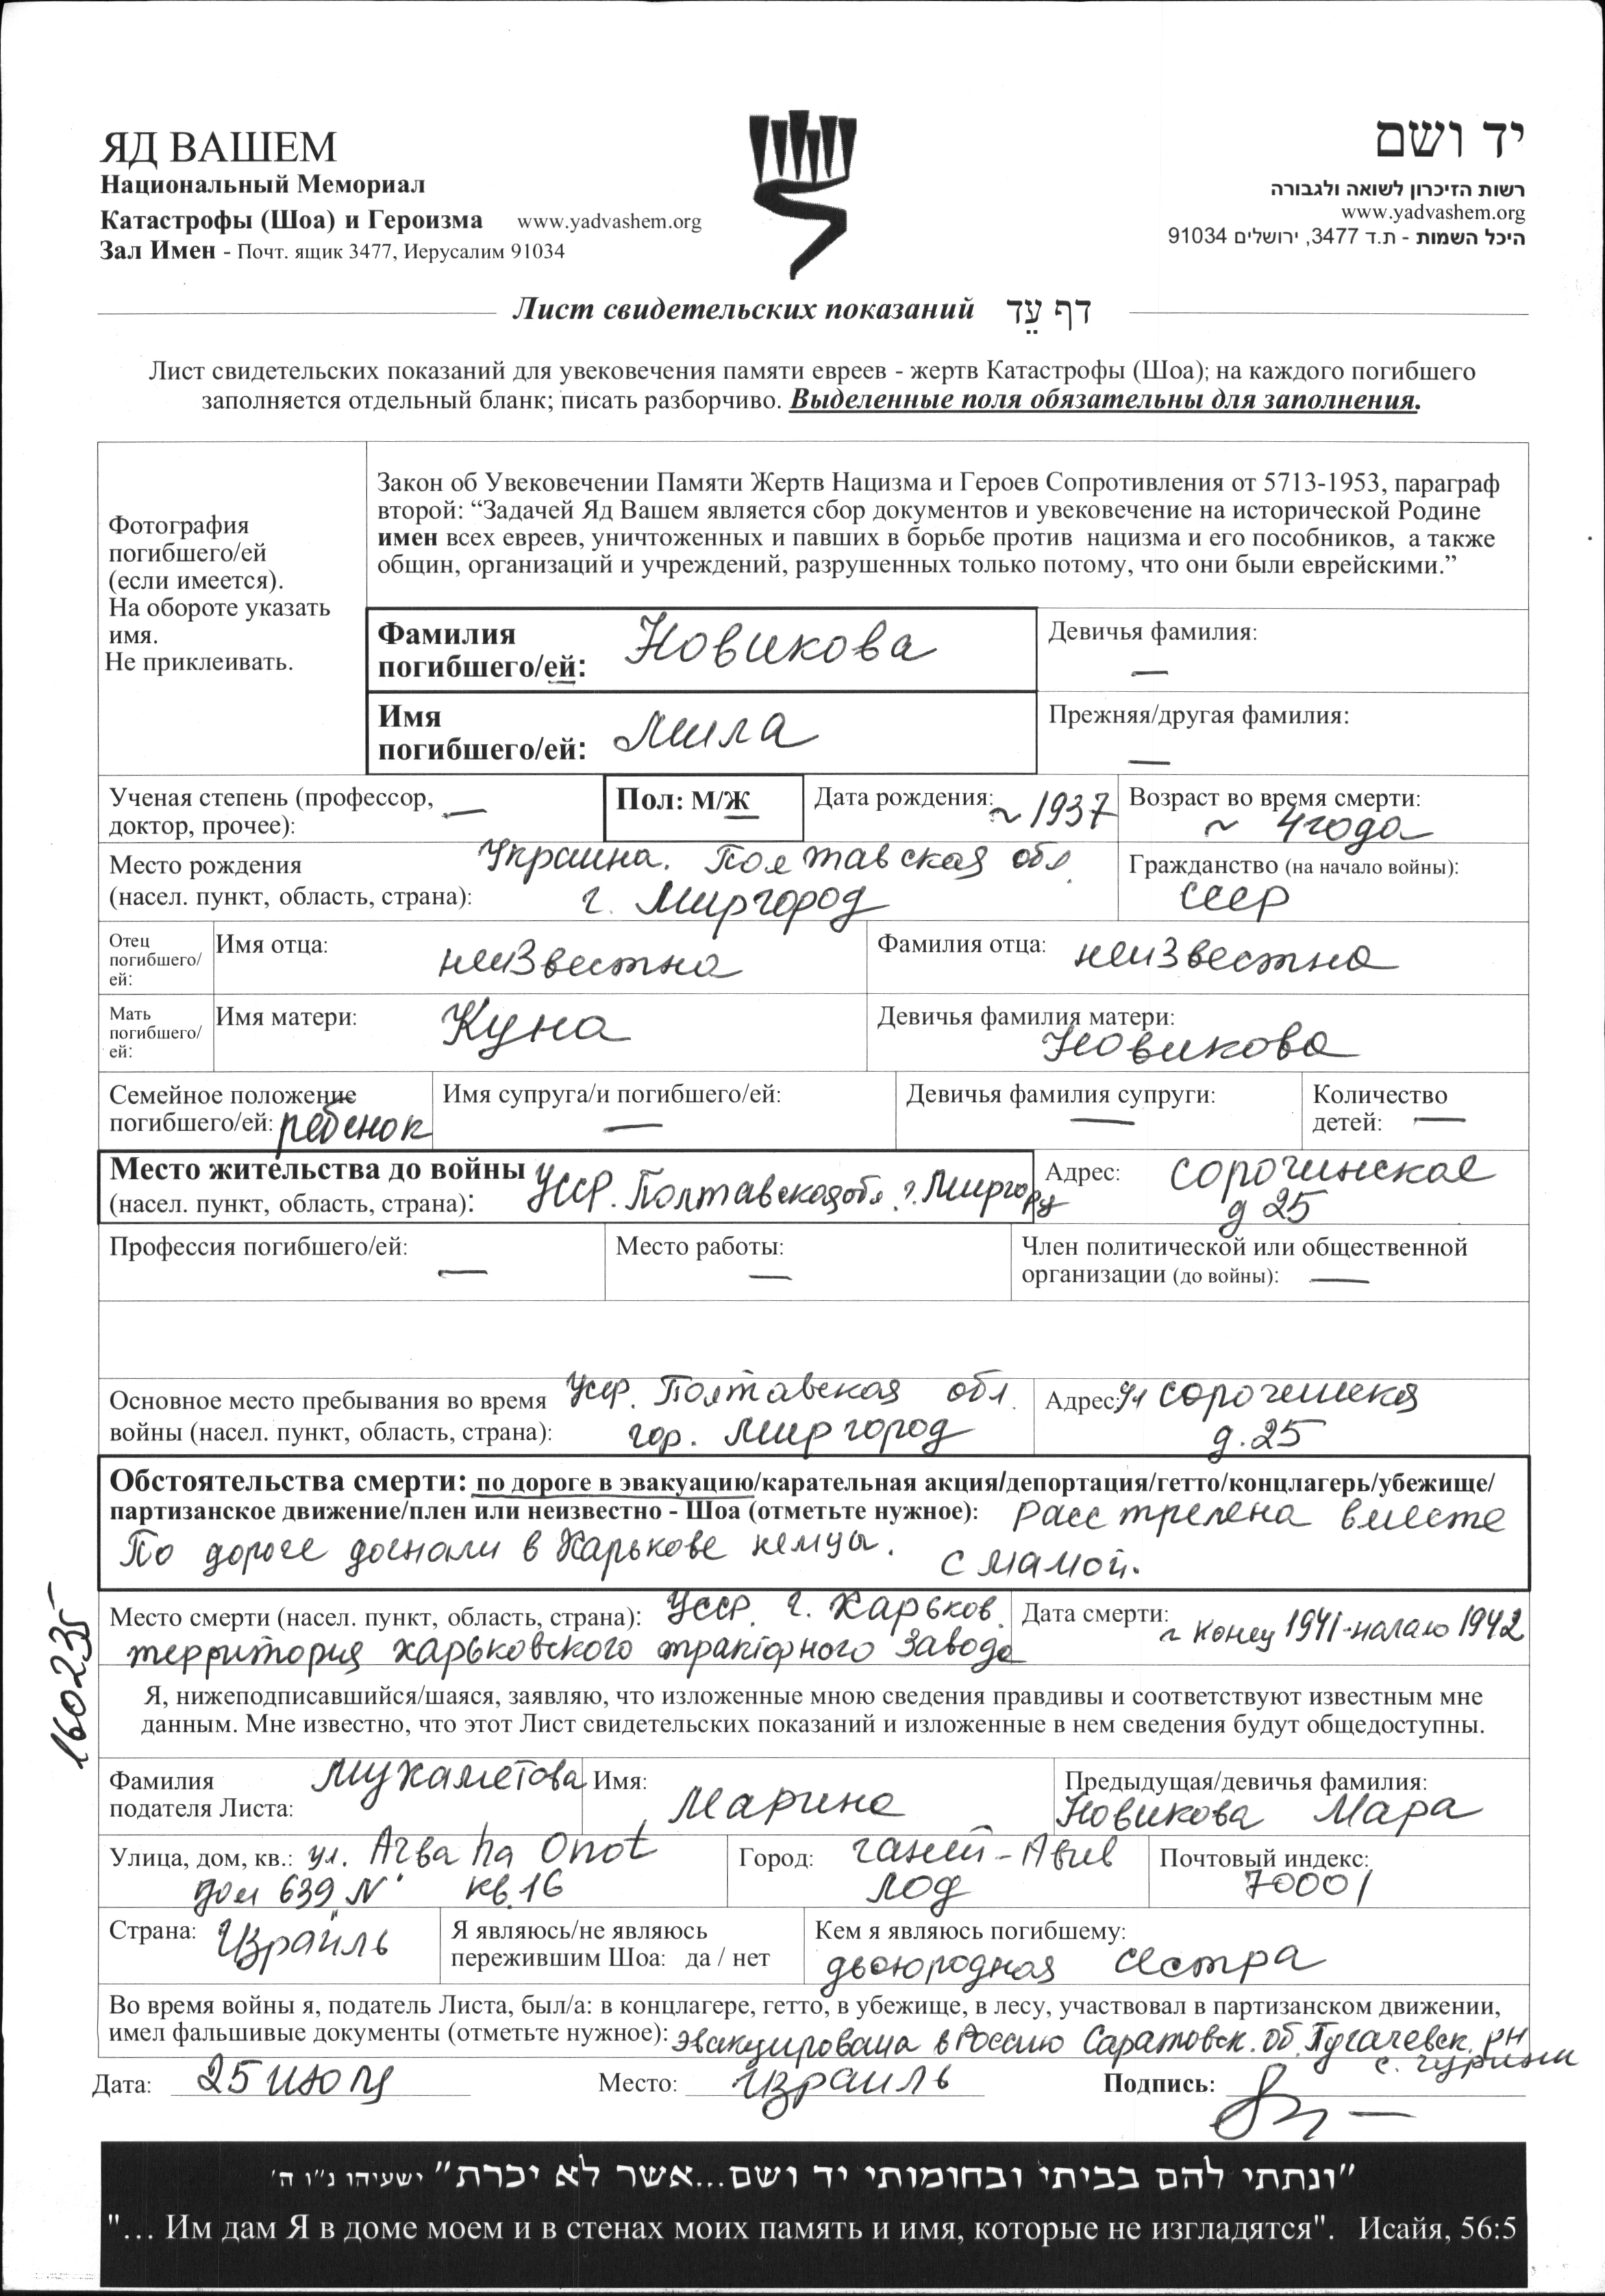 ЯД ВАШЕМ
Национальный Мемориал
Катастрофы (Шоа) и Героизма www.yadvashem.org
Зал Имен - Почт. ящик 3477, Иерусалим 91034
יד ושם
רשות הזיכרון לשואה ולגבורה
www.yadvashem.org
היכל השמות - ת.ד 3477, ירושלים 91034
Лист свидетельских показаний דף עֵד
Лист свидетельских показаний для увековечения памяти евреев - жертв Катастрофы (Шоа); на каждого погибшего
заполняется отдельный бланк; писать разборчиво. Выделенные поля обязательны для заполнения.
Фотография
погибшего/ей
(если имеется).
На обороте указать
имя.
Не приклеивать.
Закон об Увековечении Памяти Жертв Нацизма и Героев Сопротивления от 5713-1953, параграф
второй: “Задачей Яд Вашем является сбор документов и увековечение на исторической Родине
имен всех евреев, уничтоженных и павших в борьбе против нацизма и его пособников, а также
общин, организаций и учреждений, разрушенных только потому, что они были еврейскими.”
Фамилия
погибшего/ей: Новикова
Девичья фамилия:
—
Имя
погибшего/ей: Мила
Прежняя/другая фамилия:
—
Ученая степень (профессор, —
доктор, прочее):
Пол: М/Ж
Дата рождения: ~ 1937
Возраст во время смерти:
~ 4 года
Место рождения Украина. Полтавская обл.
(насел. пункт, область, страна): г. Миргород
Гражданство (на начало войны):
СССР
Отец
погибшего/
ей:
Имя отца: неизвестна
Фамилия отца: неизвестна
Мать
погибшего/
ей:
Имя матери: Куна
Девичья фамилия матери:
Новикова
Семейное положение
погибшего/ей: ребенок
Имя супруга/и погибшего/ей:
—
Девичья фамилия супруги:
—
Количество
детей: —
Место жительства до войны
(насел. пункт, область, страна): УССР. Полтавская обл. г. Миргород
Адрес: Сорочинская
д 25
Профессия погибшего/ей:
—
Место работы:
—
Член политической или общественной
организации (до войны): —
Основное место пребывания во время УССР. Полтавская обл.
войны (насел. пункт, область, страна): гор. Миргород
Адрес: ул Сорочинская
д. 25
Обстоятельства смерти: по дороге в эвакуацию/карательная акция/депортация/гетто/концлагерь/убежище/
партизанское движение/плен или неизвестно - Шоа (отметьте нужное): Расстрелена вместе
По дороге догнали в Харькове немцы. с мамой.
Место смерти (насел. пункт, область, страна): УССР. г. Харьков
территория харьковского тракторного завода
Дата смерти:
~ конец 1941-начало 1942
160235
Я, нижеподписавшийся/шаяся, заявляю, что изложенные мною сведения правдивы и соответствуют известным мне
данным. Мне известно, что этот Лист свидетельских показаний и изложенные в нем сведения будут общедоступны.
Фамилия
подателя Листа: Мухаметова
Имя:
Марина
Предыдущая/девичья фамилия:
Новикова Мара
Улица, дом, кв.: ул. Arba ha Onot
дом 639 кв. 16
Город: ганей-Авив
лод
Почтовый индекс:
70001
Страна: Израиль
Я являюсь/не являюсь
пережившим Шоа: да / нет
Кем я являюсь погибшему:
двоюродная сестра
Во время войны я, податель Листа, был/а: в концлагере, гетто, в убежище, в лесу, участвовал в партизанском движении,
имел фальшивые документы (отметьте нужное): эвакуирована в Россию Саратовск. об. Пугачевск. рн
Дата: 25 июля
Место: Израиль
Подпись:
"ונתתי להם בביתי ובחומותי יד ושם...אשר לא יכרת" ישעיהו נ"ו ה'
"... Им дам Я в доме моем и в стенах моих память и имя, которые не изгладятся". Исайя, 56:5